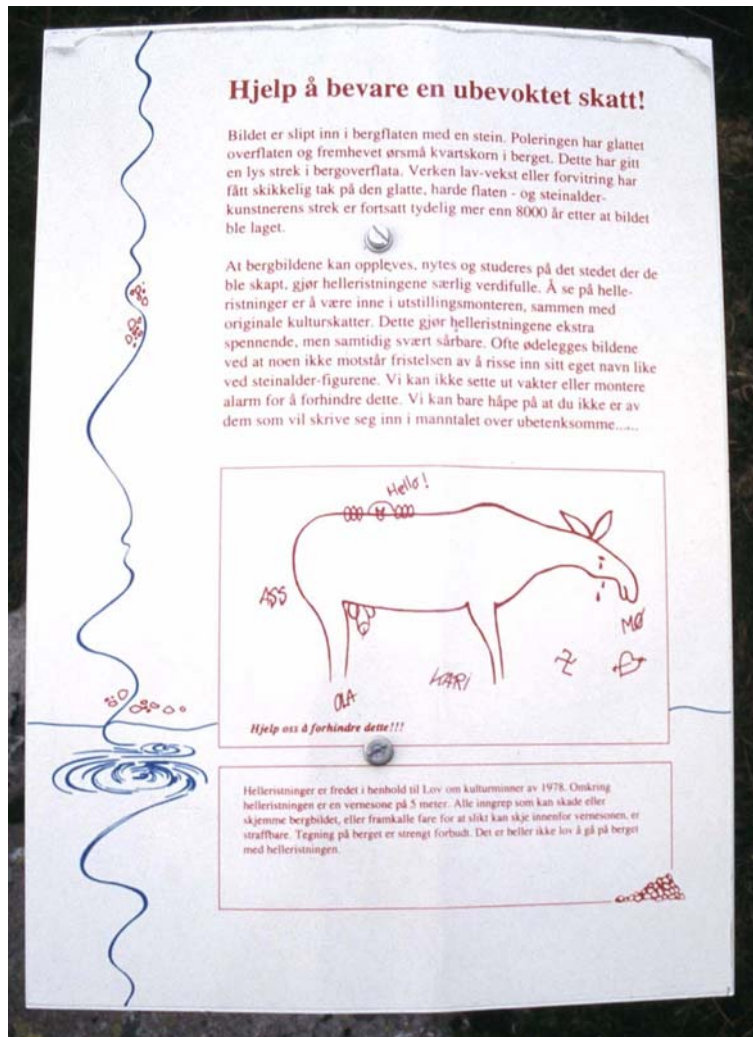 Hjelp å bevare en ubevoktet skatt!
Bildet er slipt inn i bergflaten med en stein. Poleringen har glattet
overflaten og fremhevet ørsmå kvartskorn i berget. Dette har gitt
en lys strek i bergoverflata. Verken lav-vekst eller forvitring har
fått skikkelig tak på den glatte, harde flaten - og steinalder-
kunstnerens strek er fortsatt tydelig mer enn 8000 år etter at bildet
ble laget.
At bergbildene kan oppleves, nytes og studeres på det stedet der de
ble skapt, gjør helleristningene særlig verdifulle. Å se på helle-
ristninger er å være inne i utstillingsmonteren, sammen med
originale kulturskatter. Dette gjør helleristningene ekstra
spennende, men samtidig svært sårbare. Ofte ødelegges bildene
ved at noen ikke motstår fristelsen av å risse inn sitt eget navn like
ved steinalder-figurene. Vi kan ikke sette ut vakter eller montere
alarm for å forhindre dette. Vi kan bare håpe på at du ikke er av
dem som vil skrive seg inn i manntalet over ubetenksomme......
Hello!
ASS
MØ
KARI
OLA
Hjelp oss å forhindre dette!!!
Helleristninger er fredet i henhold til Lov om kulturminner av 1978. Omkring
helleristningen er en vernesone på 5 meter. Alle inngrep som kan skade eller
skjemme bergbildet, eller framkalle fare for at slikt kan skje innenfor vernesonen, er
straffbare. Tegning på berget er strengt forbudt. Det er heller ikke lov å gå på berget
med helleristningen.